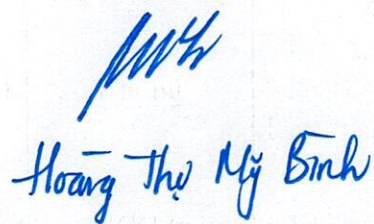 Hoàng Thị Mỹ Bình